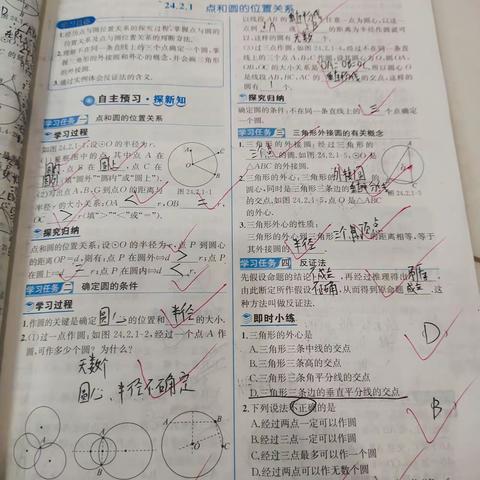 24.2.1 点和圆的位置关系
学习目标
1.经历点与圆位置关系的探究过程,掌握点与圆的
位置关系及点与圆位置关系的判断方法.
2.理解不在同一条直线上的三个点确定一个圆,掌
握三角形的外接圆和外心的概念,并会画三角形
的外接圆.
3.通过实例体会反证法的含义.
自主预习·探新知
学习任务一 点和圆的位置关系
学习过程
如图24.2.1-1,设⊙O的半径为r.
观察图中的点,其中点A在
圆上,点C在
(填“圆外”“圆内”或“圆上”).
图24.2.1-1
r的大小关系:OA
r(填“>”“<”或“=”).
探究归纳
点和圆的位置关系:设⊙O的半径为r,点P到圆心
的距离OP=d,则有:点P在圆外⇔d > r;点P
在圆上⇔d = r;点P在圆内⇔d < r.
学习任务二 确定圆的条件
学习过程
1.作圆的关键是确定 圆心 的位置和 半径 的大小.
2.(1)过一点作圆:如图24.2.1-2,经过一个点A作
圆,可作多少个圆?为什么?
无数个
圆心、半径不确定
(3)过三点作圆:如图24.2.1-4,经过不在同一条直
线上的三个点A,B,C作圆
圆有 1 个.
探究归纳
确定圆的条件:不在同一条直线上的 三 个点确定
一个圆.
学习任务三 三角形外接圆的有关概念
1.三角形的外接圆:经过三角形的
三个顶点的圆.如图24.2.1-5,⊙O是
△ABC的外接圆.
2.三角形的外心:三角形 外接圆 的
圆心,同时是三角形三条边的
的交点.如图24.2.1-5,点O是△ABC
的外心.
图24.2.1-5
3.三角形外心的性质:
三角形的外心到三角形 三个顶点 的距离相等,等于
其外接圆的 半径.
学习任务四 反证法
先假设命题的结论 不成立,再经过推理得出 矛盾,
由此断定所作假设 不正确,从而得到原命题 成立.这
种方法叫做反证法.
即时小练
1.三角形的外心是 D
A.三角形三条中线的交点
B.三角形三条高的交点
C.三角形三条角平分线的交点
D.三角形三条边的垂直平分线的交点
2.下列说法不正确的是 B
A.经过两点一定可以作圆
B.经过三点一定可以作圆
C.经过三点最多可以作一个圆
D.经过两点可以作无数个圆